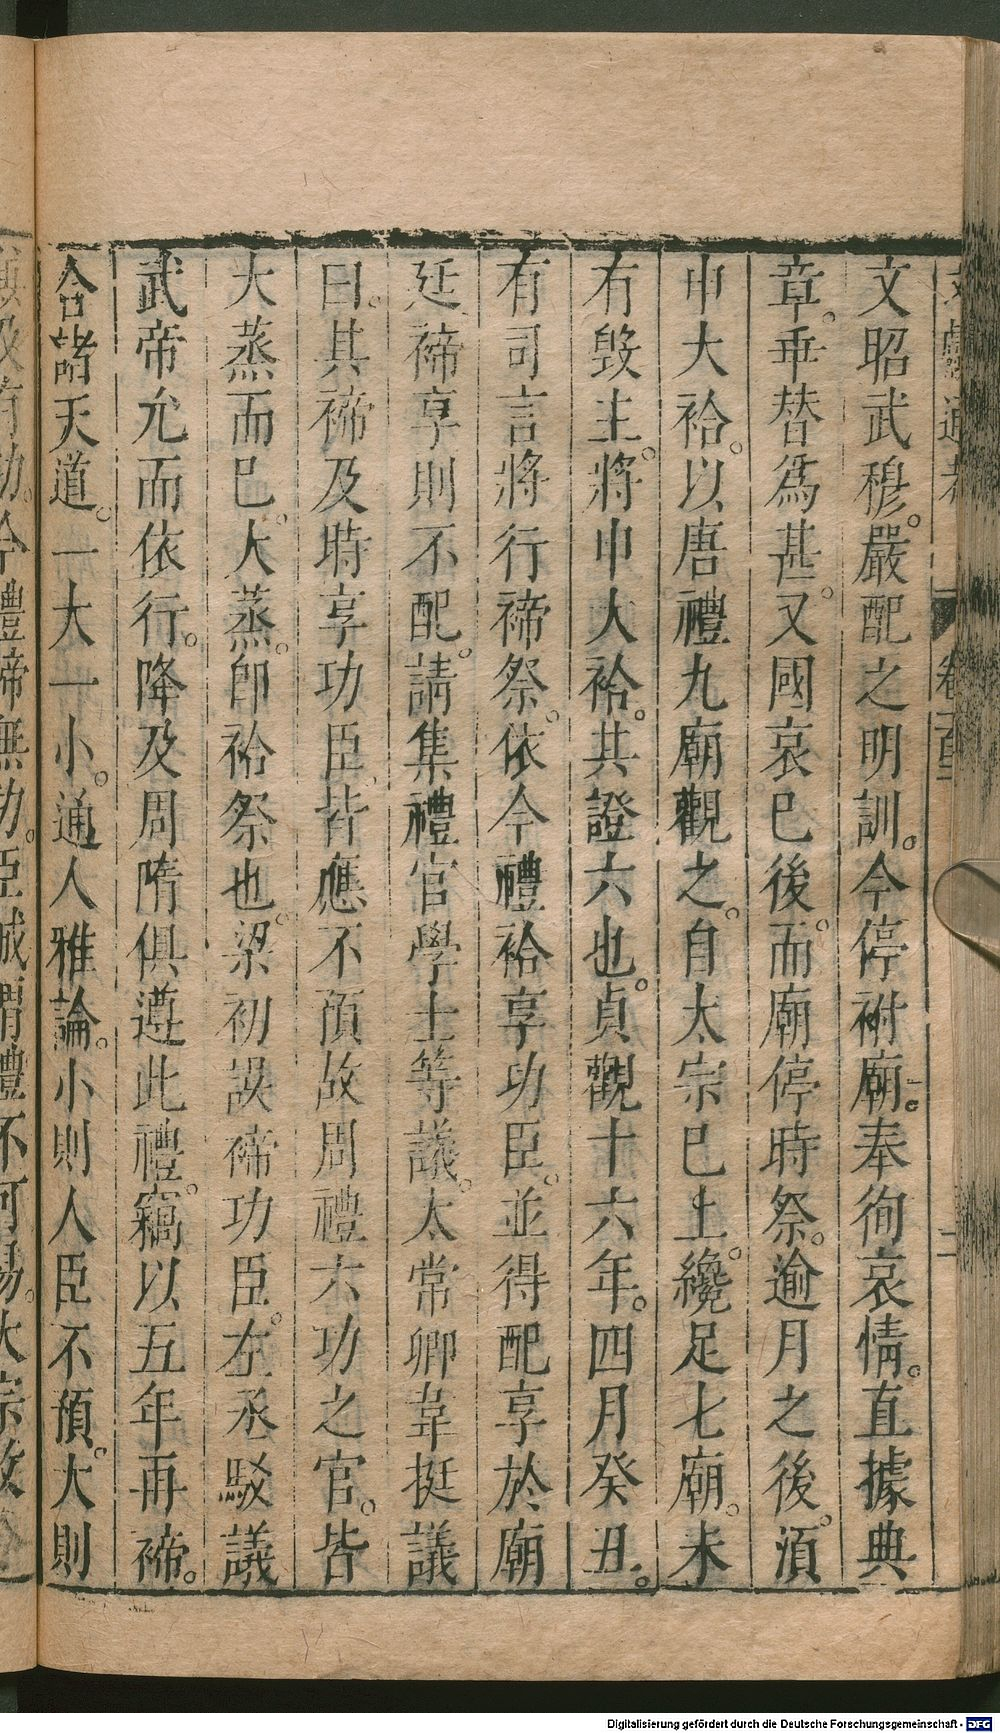 文昭武穆。嚴配之明訓。今停祔廟。奉徇哀情。直據典
章。乖替爲甚。又國哀已後。而廟停時祭。逾月之後。湏
申大祫。以唐禮九廟觀之。自太宗已上。纔足七廟。未
有毁主。將申大祫。共證六也。貞觀十六年。四月癸丑。
有司言將行禘祭。依今禮祫享功臣。並得配享於廟
延禘享則不配。請集禮官學士等議。太常卿韋挺議
曰。其禘及時享功臣皆應不預故周禮六功之官。皆
大蒸而已。大蒸。卽祫祭也。梁初誤禘功臣。左丞駁議
武帝允而依行。降及周隋俱遵此禮。竊以五年再禘。
合諸天道。一大一小。通人雅論。小則人臣不預。大則
Digitalisierung gefördert durch die Deutsche Forschungsgemeinschaft - DFG